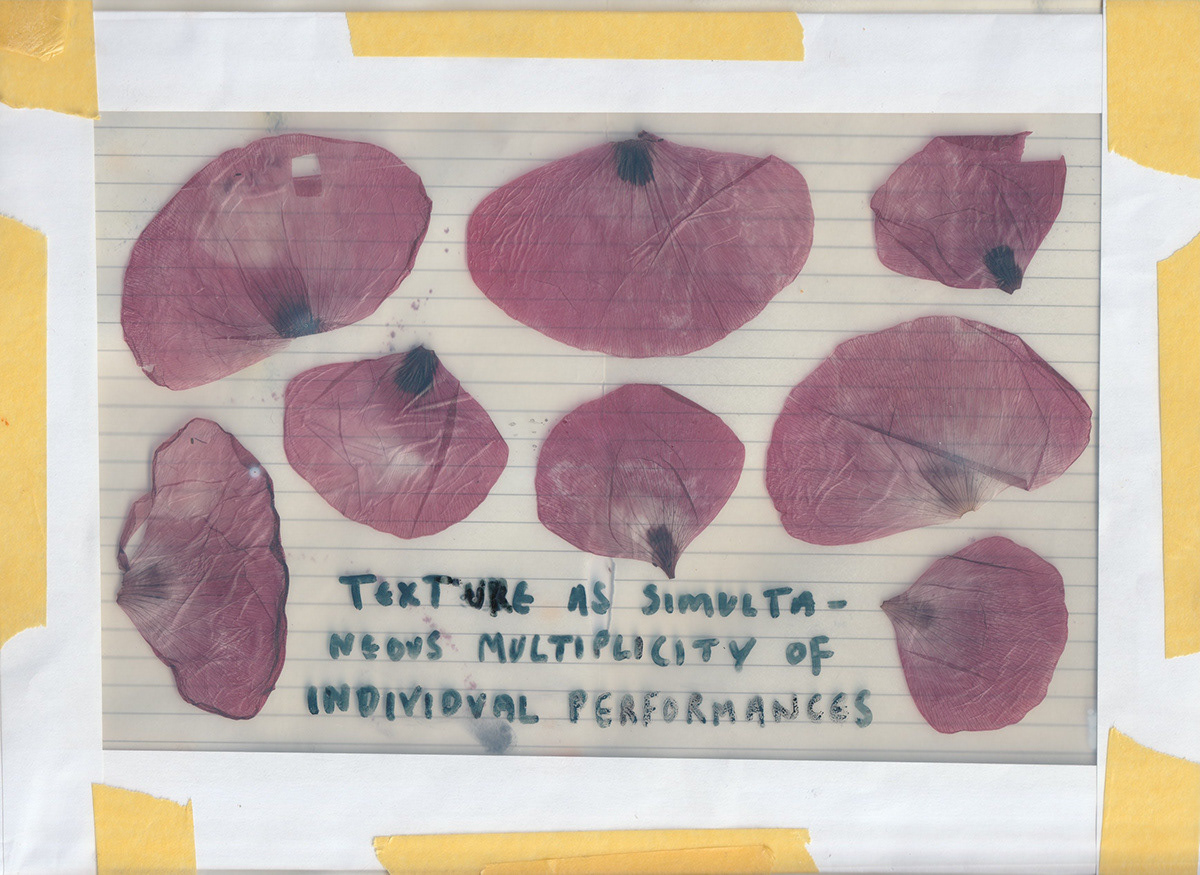 TEXTURE AS SIMULTA-
NEOUS MULTIPLICITY OF
INDIVIDUAL PERFORMANCES